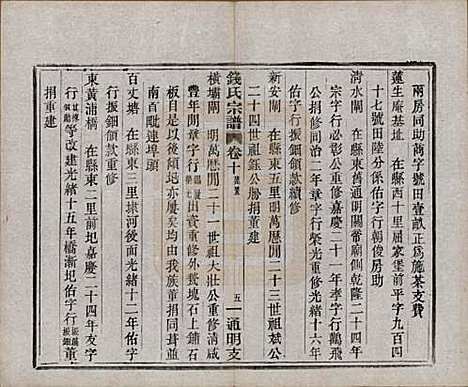 兩房同助商字號田壹畝正爲施茶支費
蓮生庵基址　在縣西十里屈家堡前平字九百四
十七號田陸分係佑字行朝俊房助
清水閘　在縣東萬通明關常廟側乾隆二十四年
宗字行必彰公重修嘉慶二十一年孝字行鶴飛
公捐修同治二年章字行榮光重修光緒十六年
佑字行振鈿續修
新安閘　在縣東五里明萬歷間二十三世祖斌公
二十四世祖鈺公勝捐重建
錢氏宗譜　卷十　五　一　通明支
橫壩閘　明萬歷間二十一世祖大壯公重修清咸
豐年間章字行重修外甃塊石上鋪石
版是以後傾圮亦屢矣均由我族董捐葺並
南首毗連埠頭
百丈塘　在縣東三里埭河後面光緒十二年佑字
行振鈿領款重修
東黃浦橋　在縣東二里前圯嘉慶二十四年友字
行等改建光緒十五年橋漸圯佑字行董
捐重建